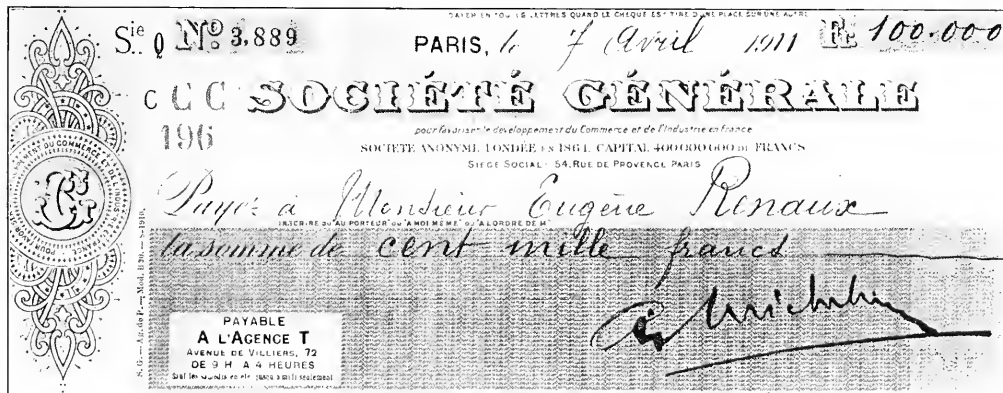 PAYER EN TOUTES LETTRES QUAND LE CHÈQUE EST TIRÉ D'UNE PLACE SUR UNE AUTRE
Sie Q No 3.889 PARIS, le 7 Avril 1911 F. 100.000
C C C SOCIÉTÉ GÉNÉRALE
196
pour favoriser le développement du Commerce et de l'Industrie en France
SOCIÉTÉ ANONYME FONDÉE EN 1864. CAPITAL 400.000.000 DE FRANCS
SIÈGE SOCIAL: 54, RUE DE PROVENCE, PARIS
Payez à Monsieur Eugène Renaux
INSCRIRE OU AU PORTEUR OU A MOI MÊME OU A L'ORDRE DE M
la somme de cent mille francs
Michelin
PAYABLE
A L'AGENCE T
AVENUE DE VILLIERS, 72
DE 9 H. A 4 HEURES